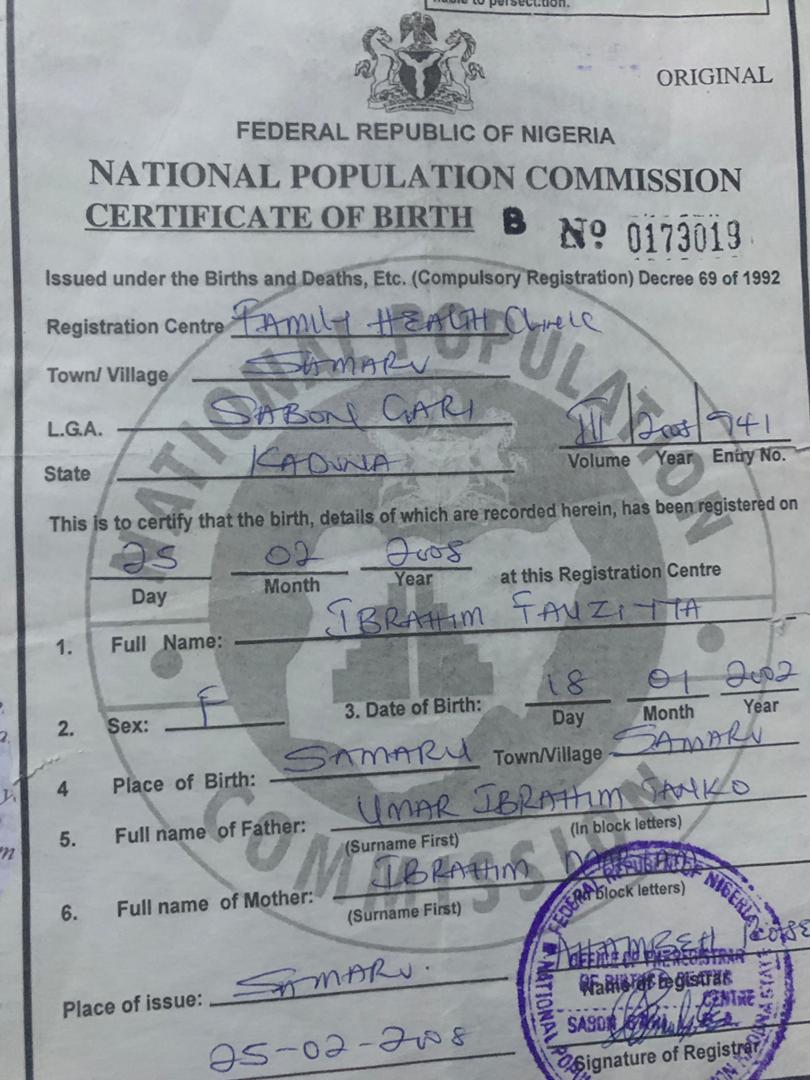 ORIGINAL
FEDERAL REPUBLIC OF NIGERIA
NATIONAL POPULATION COMMISSION
CERTIFICATE OF BIRTH B No 0173019
Issued under the Births and Deaths, Etc. (Compulsory Registration) Decree 69 of 1992
Registration Centre FAMILY HEALTH Clinic
Town/ Village SAMARU
L.G.A. SABON GARI
III 2008 941
Volume Year Entry No.
State KADUNA
This is to certify that the birth, details of which are recorded herein, has been registered on
25 02 2008
Day Month Year at this Registration Centre
1. Full Name: IBRAHIM
2. Sex: F 3. Date of Birth: 18 01 2002
Day Month Year
4 Place of Birth: SAMARU Town/Village SAMARU
5. Full name of Father: UMAR IBRAHIM SANKO
(Surname First) (In block letters)
6. Full name of Mother: IBRAHIM
(Surname First) block letters)
Name of Registrar
Place of issue: SAMARU.
25-02-2008
Signature of Registrar
NATIONAL POPULATION COMMISSION